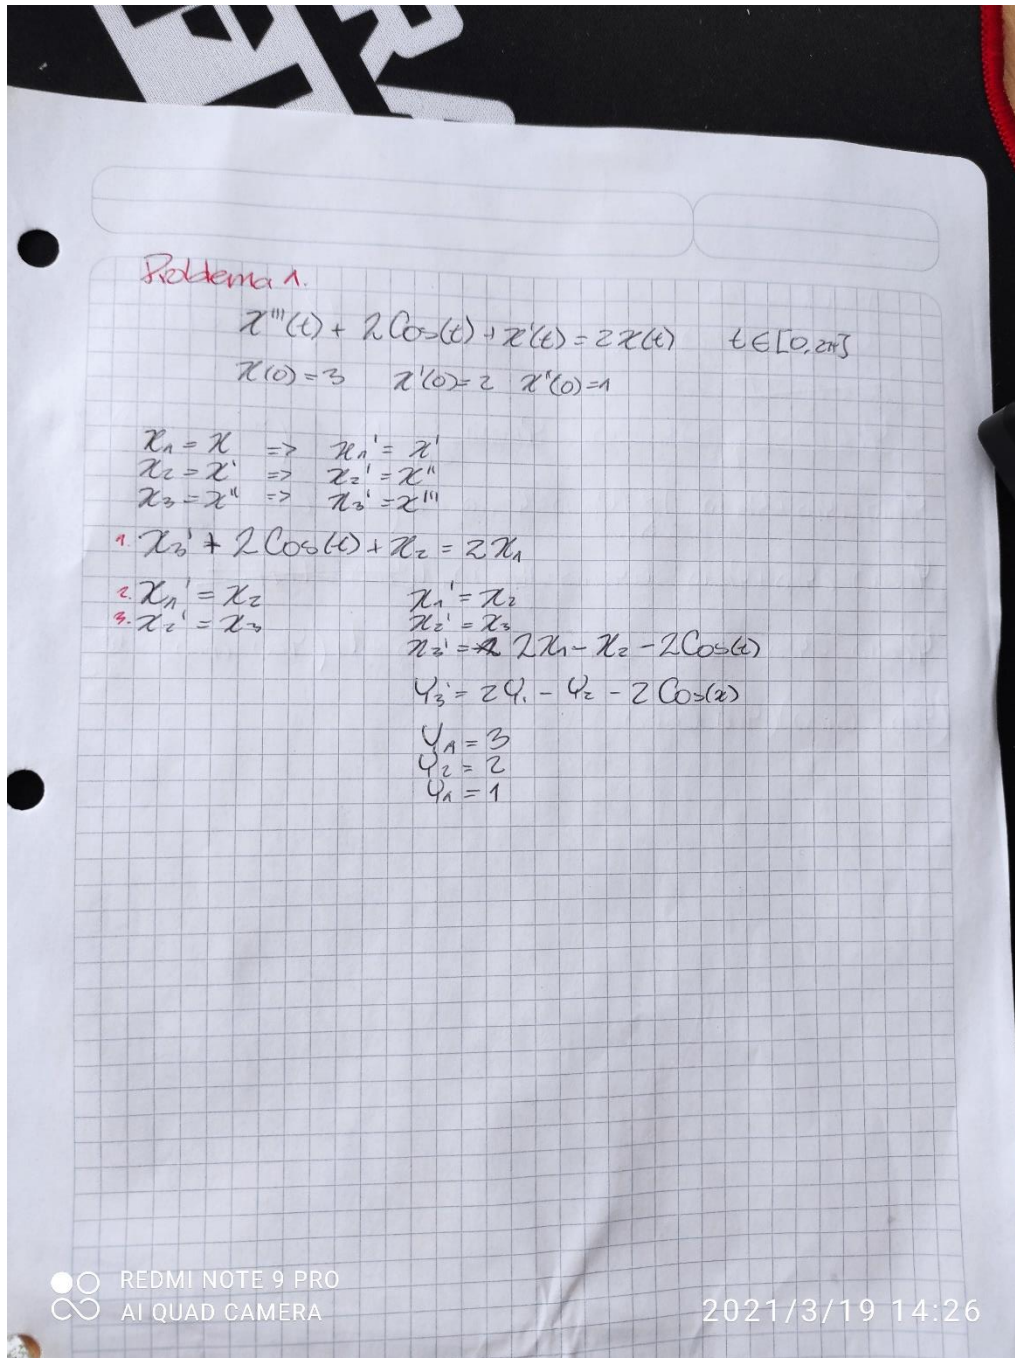 Problema 1.
x'''(t) + 2Cos(t) + x'(t) = 2x(t) t ∈ [0, 2π]
x(0) = 3 x'(0) = 2 x''(0) = 1
x1 = x => x1' = x'
x2 = x' => x2' = x''
x3 = x'' => x3' = x'''
1. x3' + 2Cos(t) + x2 = 2x1
2. x1' = x2
3. x2' = x3
x1' = x2
x2' = x3
x3' = 2x1 - x2 - 2Cos(t)
Y3' = 2Y1 - Y2 - 2Cos(x)
Y1 = 3
Y2 = 2
Y1 = 1
REDMI NOTE 9 PRO
AI QUAD CAMERA
2021/3/19 14:26